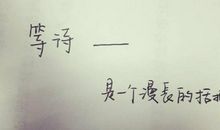 等待 —
是一个漫長的